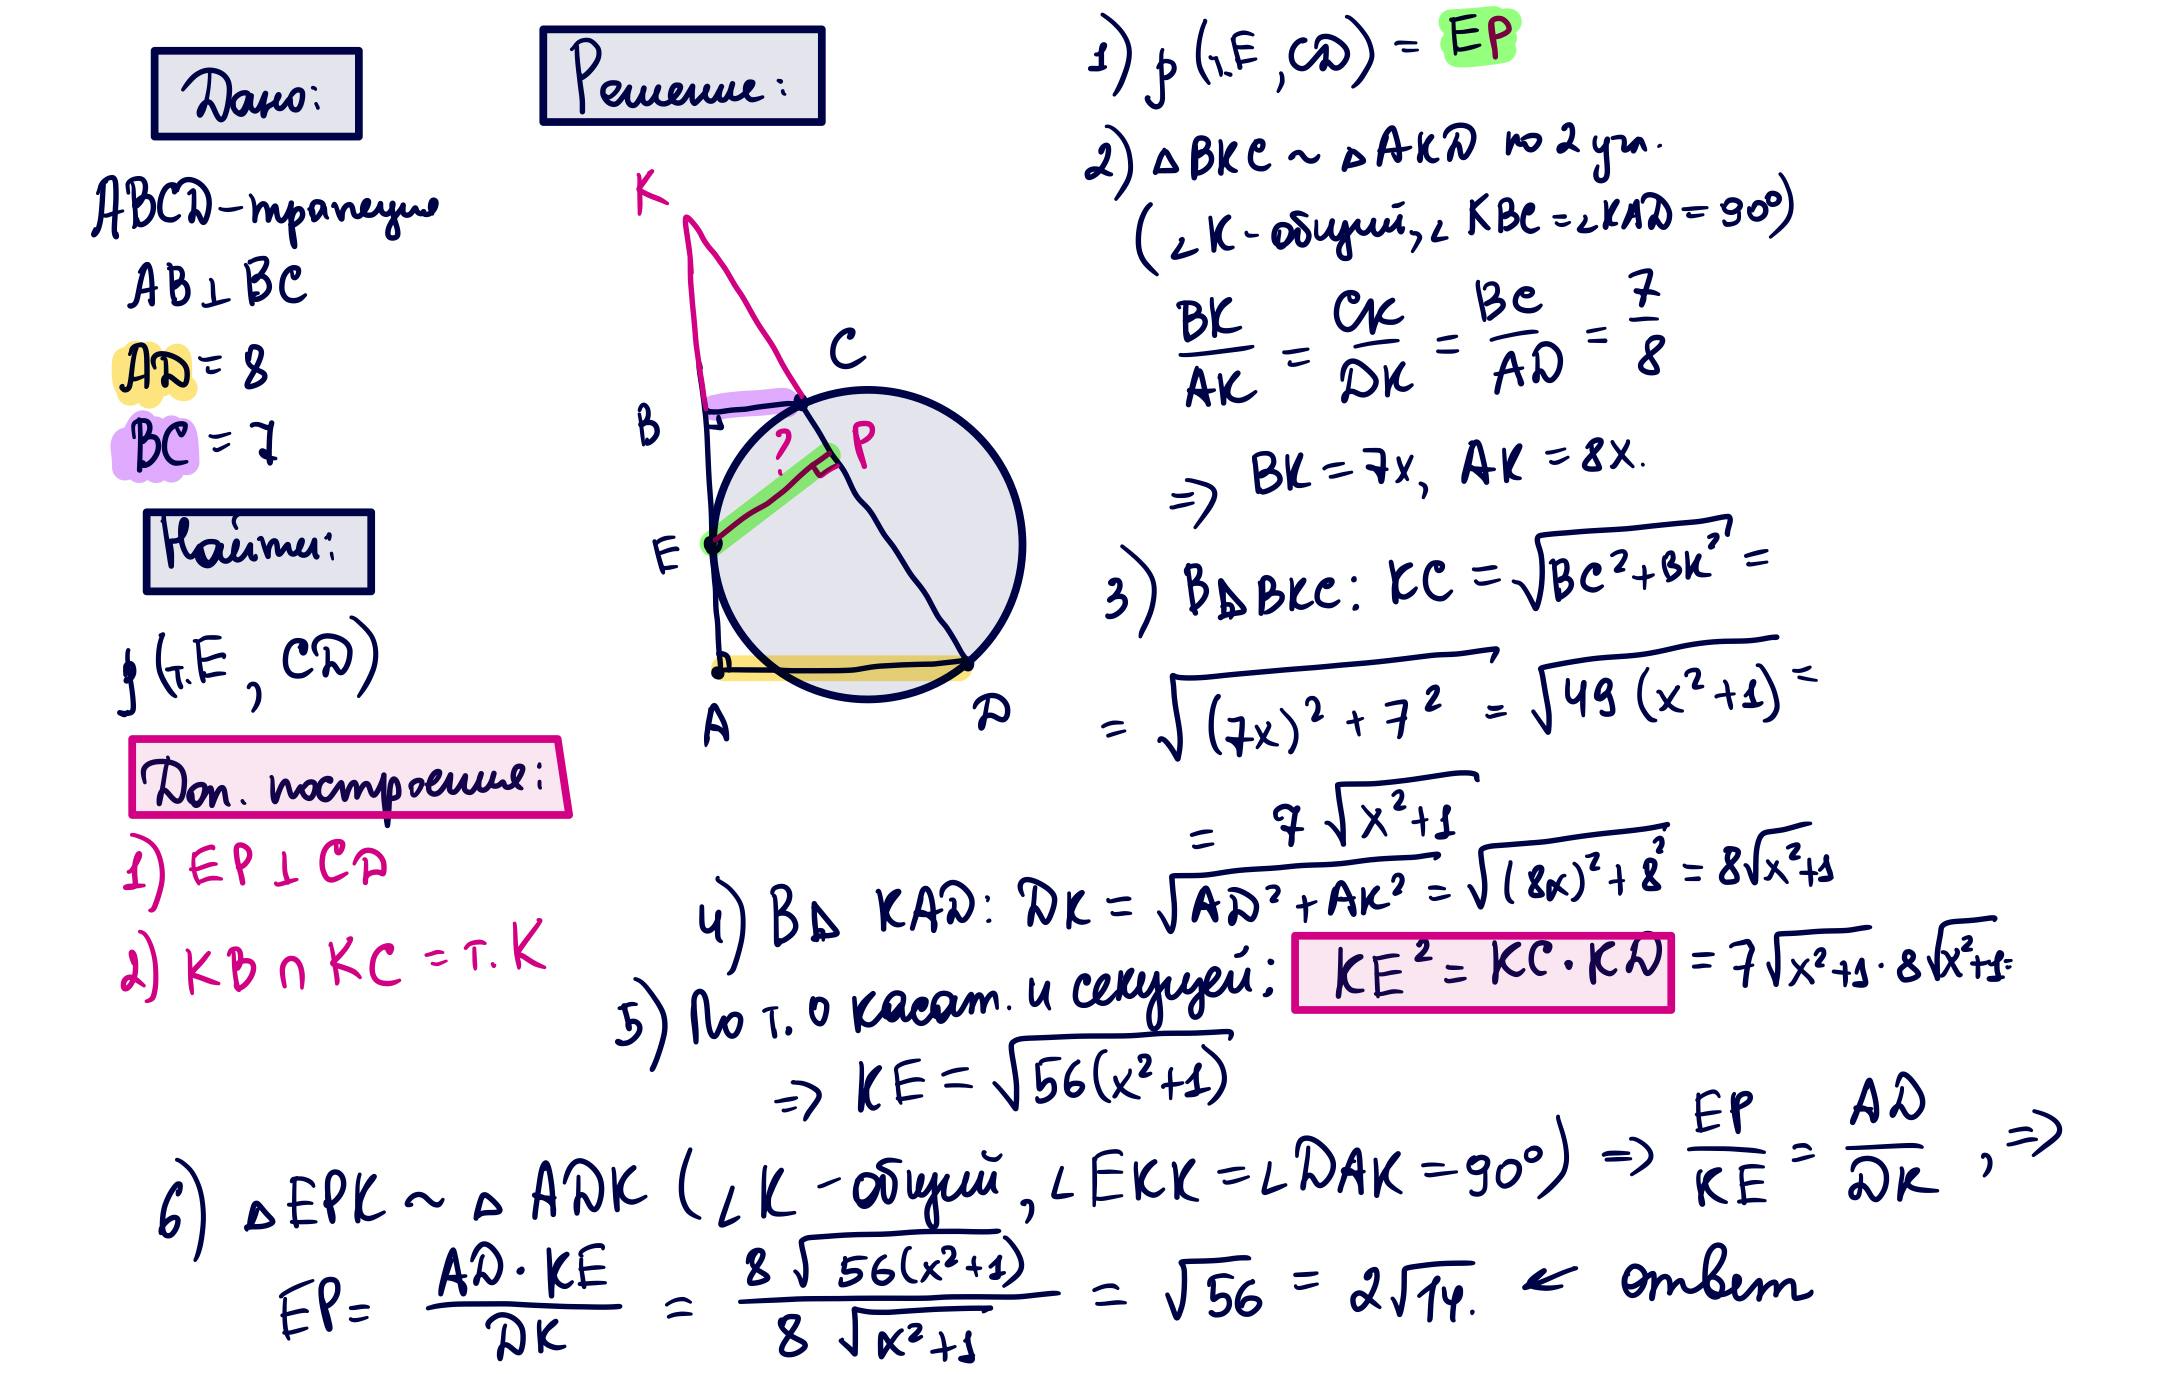 Дано:
ABCD - трапеция
AB ⊥ BC
AD = 8
BC = 7
Найти:
ρ (т.E, CD)
Доп. построения:
1) EP ⊥ CD
2) KB ∩ KC = т. K
Решение:
K
C
B
?
P
E
A
D
1) ρ (т.E, CD) = EP
2) △BKC ~ △AKD по 2 угл.
(∠K - общий, ∠KBC = ∠KAD = 90°)
BK/AK = CK/DK = BC/AD = 7/8
⇒ BK = 7x, AK = 8x.
3) В △BKC: KC = √(BC² + BK²) =
= √((7x)² + 7²) = √(49 (x² + 1)) =
= 7√(x² + 1)
4) В △ KAD: DK = √(AD² + AK²) = √((8x)² + 8²) = 8√(x² + 1)
5) По т. о касат. и секущей: KE² = KC · KD = 7√(x² + 1) · 8√(x² + 1) =
⇒ KE = √(56(x² + 1))
6) △EPK ~ △ ADK (∠K - общий, ∠EKK = ∠DAK = 90°) ⇒ EP/KE = AD/DK, ⇒
EP = AD · KE/DK = 8√(56(x² + 1))/8√(x² + 1) = √56 = 2√14. ← ответ